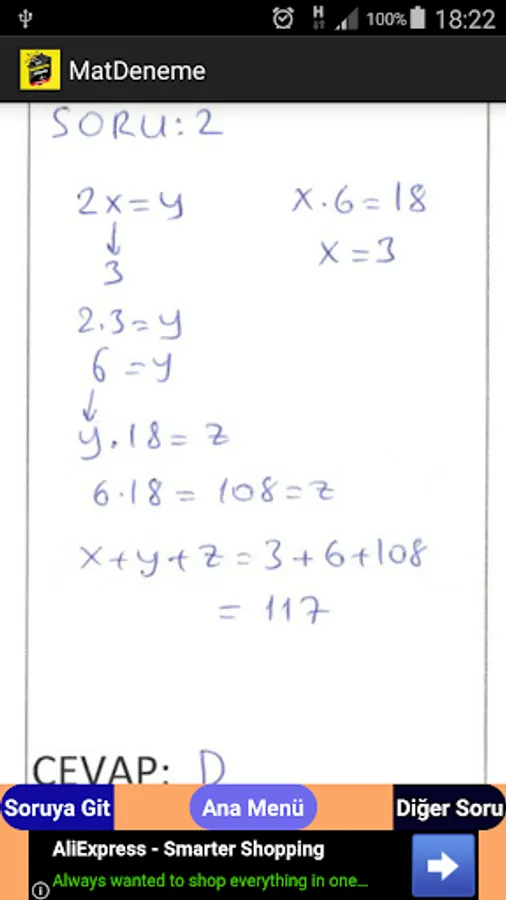 H 100% 18:22
MatDeneme
SORU: 2
2x=y x.6=18
↓ x=3
3
2.3=y
6=y
↓
y.18=z
6.18=108=z
x+y+z=3+6+108
=117
CEVAP: D
Soruya Git Ana Menü Diğer Soru
AliExpress - Smarter Shopping
Always wanted to shop everything in one...